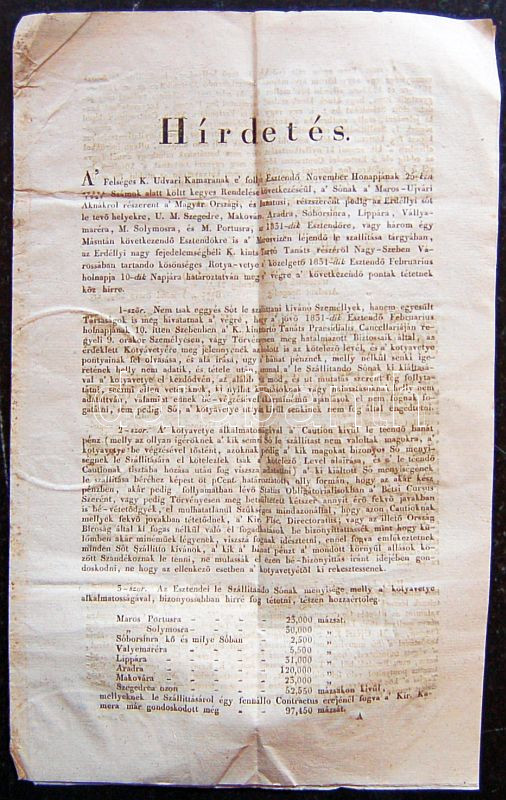 Hírdetés.
A' Felséges K. Udvari Kamarának e' folyó Esztendő November Honapjának 25-kén
Számok alatt költ kegyes Rendelése következésésűl, a' Sónak a' Maros-Ujvári
Aknákról részerent a' Magyar Országi, és Banatusi, részszerént pedig az Erdéllyi sót
le tevő helyekre, U. M. Szegedre, Makován, Aradra, Sóborsinra, Lippára, Vállya-
maréra, M. Solymosra, és M. Portusra, az 1831-dik Esztendőre, vagy három egy
Másután következendő Esztendőkre is a' Marosvizén léjendő le szállitása tárgyában,
az Erdéllyi nagy fejedelemségbéli K. kints Tartó Tanáts részéről Nagy-Szeben Vá-
rossában tartando kösönséges Kotya-vetye a' közelgető 1831-dik Esztendő Februarius
holnapja 10-dik Napjára határoztatván meg, e' végre a' következendő pontak tétetnek
köz hirre.
1-ször. Nem tsak eggyés Sót le szállitani kivánó Személyek, hanem egyesült
Társaságok is még hivatatnak a' végré, hogy a' jövő 1831-dik Esztendő Februarius
holnapjának 10. itten Szebenben a' K. kints tartó Tanáts Praesidialis Cancellariáján re-
gyeli 9. orákor Személyesen, vagy Törvényesen meg hatalmazott Biztossaik által, az
érdeklett Kotyavetyére meg jelennyenek, azoknak is az kötelező levél, és a' kotyavetye
pontyainak fel olvasása, és alá irása, ugy a' bánat pénznek, melly nélkül senki ige-
retének helly nem adatik, és tétele után, azonnal a' le Szállitando Sónak ki kiáltasá-
val a' kotyavetye el kezdődvén, az alábbi modon, és ut mutatás szerent fog follyta-
tatni,
2-szor. A' kotyavetye alkalmatoságával a' Caution kivül le teendő bánat
pénz (melly az ollyan igéröknek a' kik semmi Só le szállitást nem vallottak magokra, a'
kotyavetye be végzésével löstént, azoknak pedig a' kik magokat bizonyos Só menyi-
ségnek le Szállitására le kötelezték, tsak a' kötelező Levél aláirása, és a' le teendő
Cautiónak tisztába hozása után fog vissza adatni) a' ki kiáltott Só menyiségének
le szállitása béréhez képest öt pCent. határoztatott, olly formán, hogy az akár kész
pénzben, akár pedig follyamatban lévő Status Obligatoriálisokban a' Bétsi Cursus
Szerént, vagy pedig Törvényesen meg betsűltetett kétszer annyit érő fekvő javakban
is bé-vétetődgyék, el mulhatatlanul Szükséges mindazonáltal, hogy azon Cautióknak
mellyek fekvő jovakban tétetődnek, a' Kir. Fisc. Directoratus, vagy az illető Ország
Biroság által ki fogás nélkül való el fogadtatások le bizonyittassék mint hogy kű-
lömben akár minémüek légyenek, viszsza fognak idésztetni, ennél fogva emlékeztetnek
minden Sót Szállitto kivánok, a' kik a' banat pénzt a' mondott környül állások ko-
zött Szándékoznak le tenni, ne mulassák el ezen bé-bizonyitás iránt idejében gon-
doskodni, ne hogy az ellenkező esetben a' kotyavetyétöl ki rekesztessenek.
3-szor. Az Esztendei le Szállitando Sónak menyisége melly a' kotyavetye
alkalmatosságával, bizonyossabban hirré fog tétetni, tészen hozzáértőleg
Maros Portusra - - - - 25,000 mázsát.
„ Solymosra - - - - 30,000 „
Sóborsinra kő és millye Sóban - 2,500 „
Valyemaréra - - - - 5,500 „
Lippára - - - - 31,000 „
Aradra - - - - 120,000 „
Makovára - - - - 23,000 „
Szegedrea azon - - - - 52,550 mázsákon kivül,
mellyeknek le Szállitásárol égy fennállo Contractus erejénél fogva a' Kir. Ka-
mera már gondoskodott még - 97,450 mázsát.
A